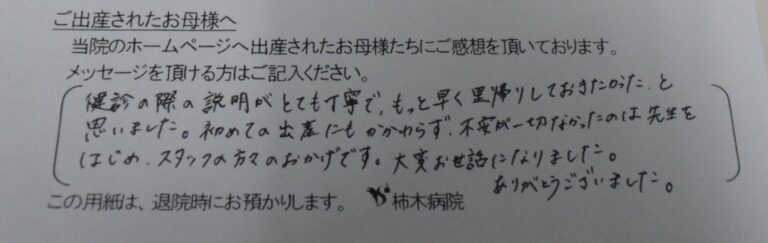 ご出産されたお母様へ
当院のホームページへ出産されたお母様たちにご感想を頂いております。
メッセージを頂ける方はご記入ください。
健診の際の説明がとても丁寧で、もっと早く里帰りしておきたかった、と
思いました。初めての出産にもかかわらず、不安が一切なかったのは先生を
はじめ、スタッフの方々のおかげです。大変お世話になりました。
ありがとうございました。
この用紙は、退院時にお預かりします。 柿木病院